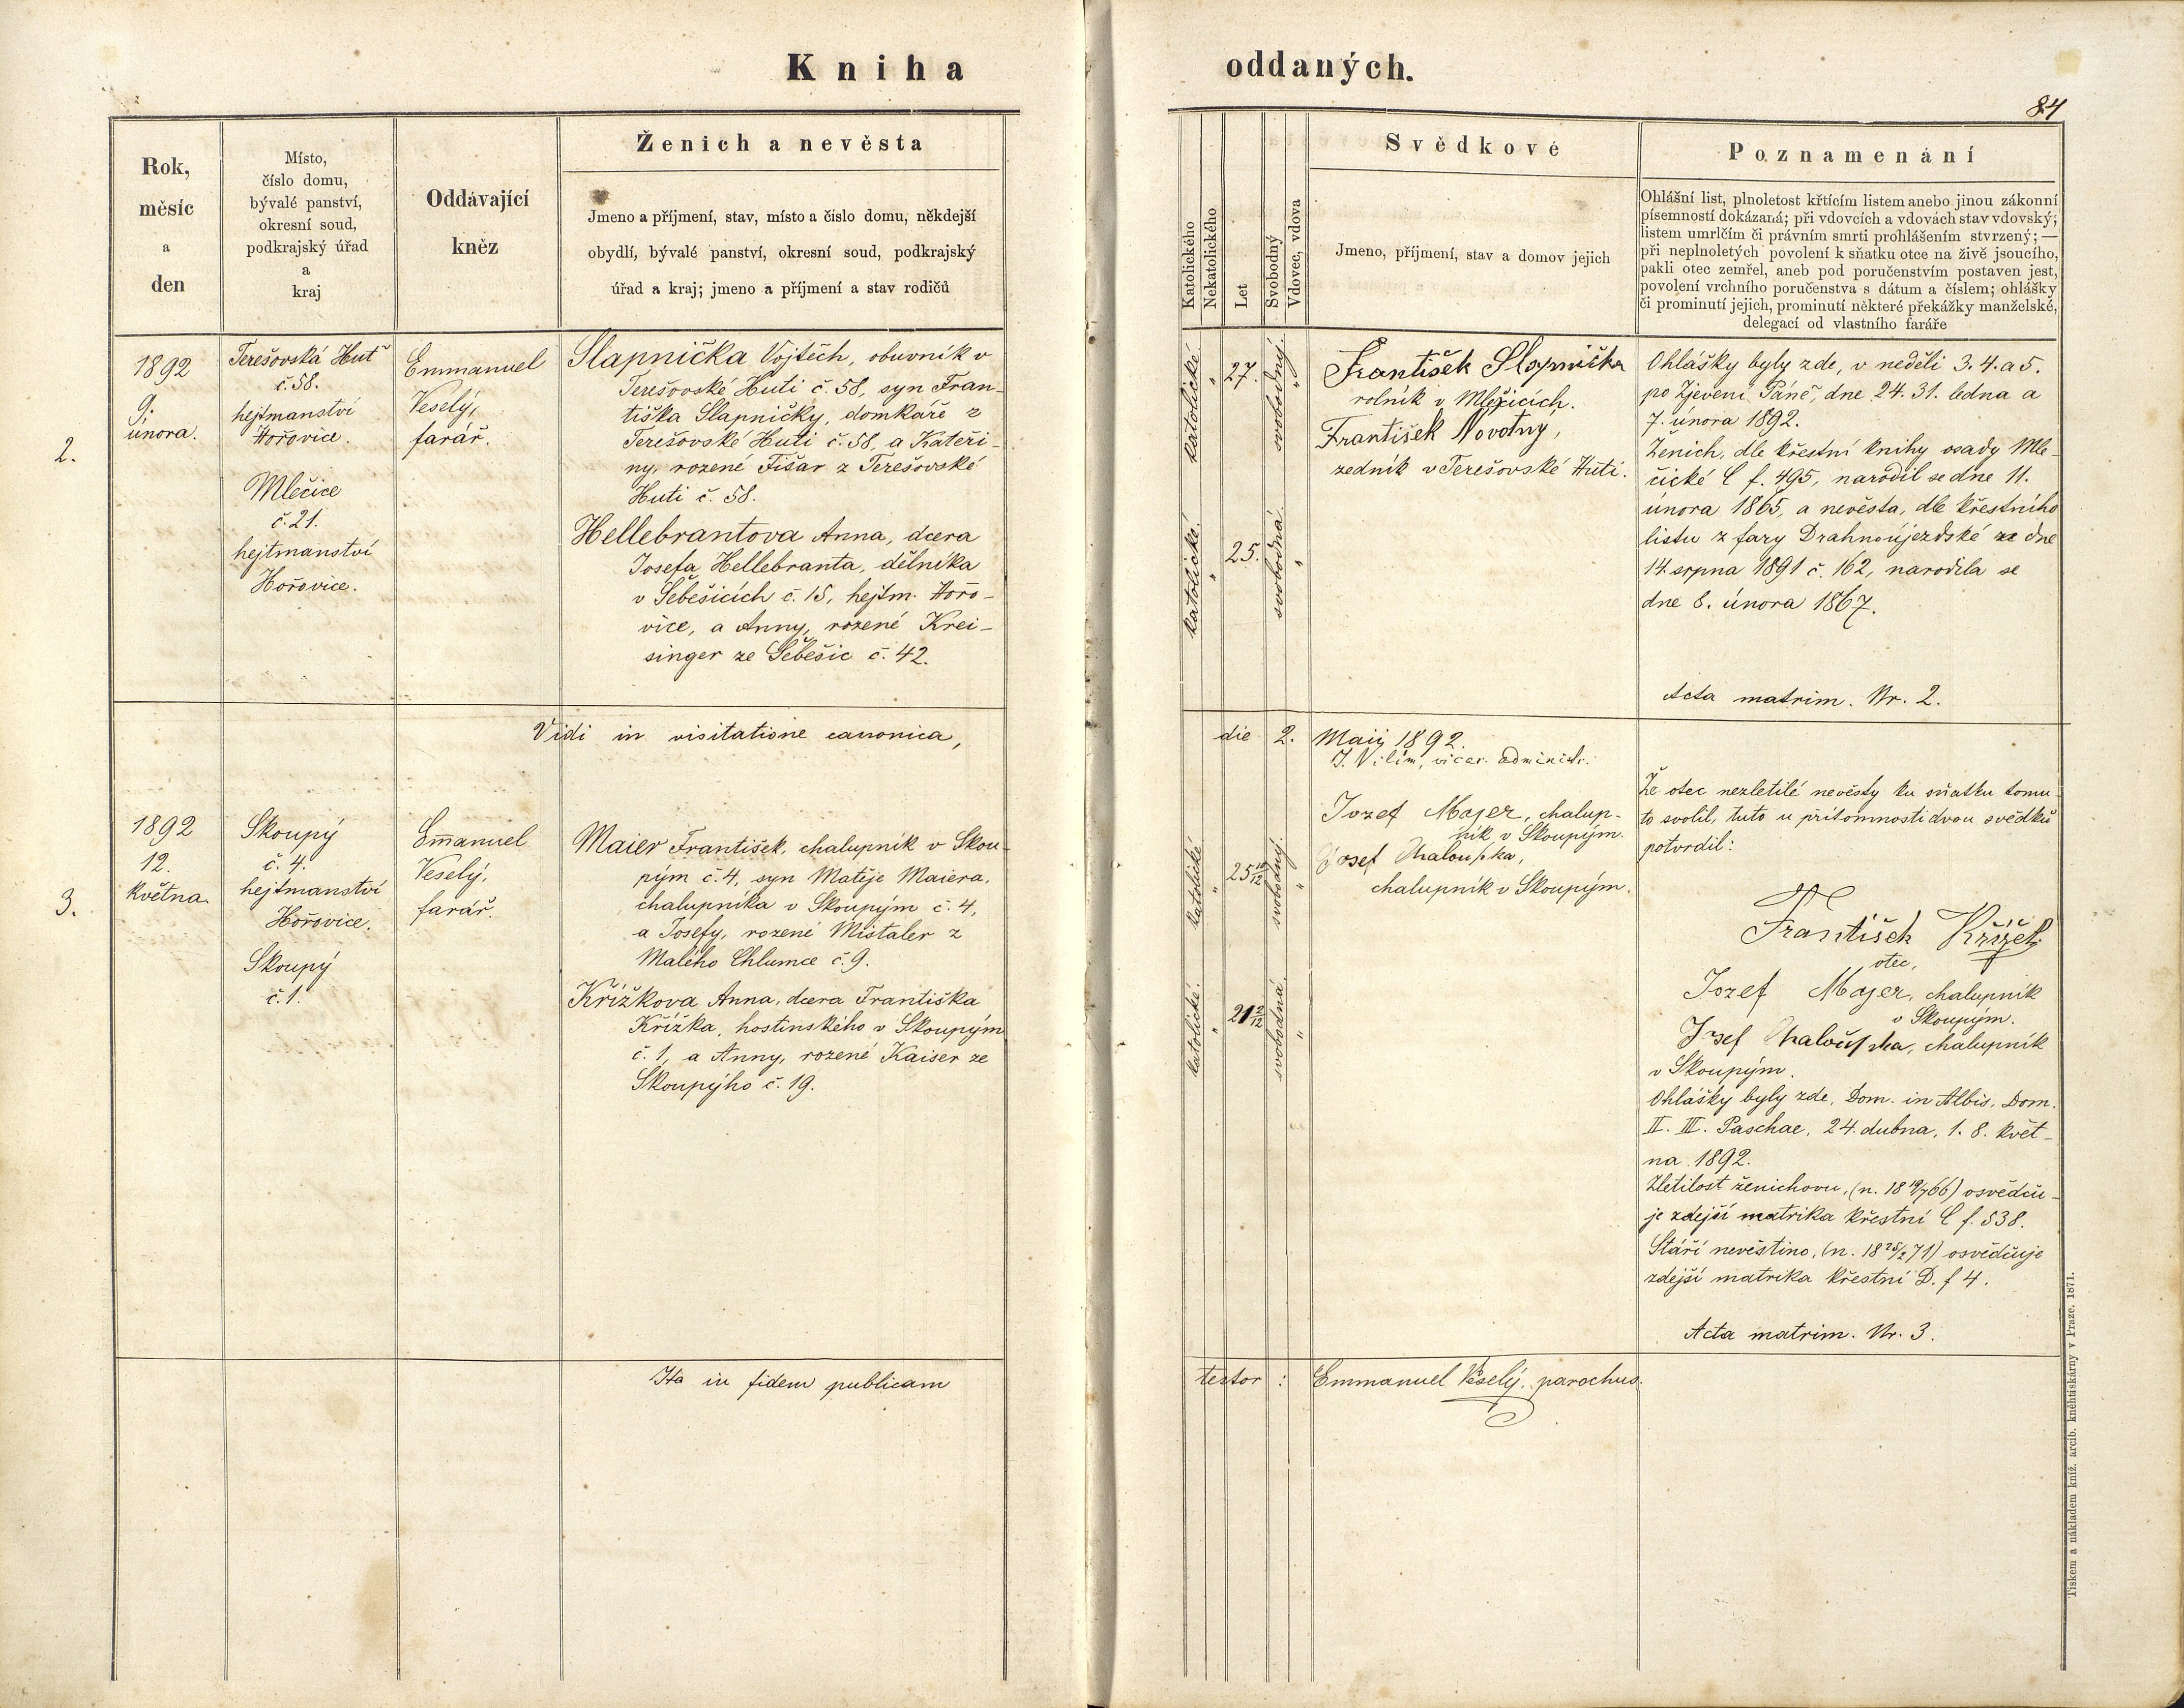 Kniha
oddaných.
84
Rok,
měsíc
a
den
Místo,
číslo domu,
bývalé panství,
okresní soud,
podkrajský úřad
a
kraj
Oddávající
kněz
Ženich a nevěsta
Jmeno a příjmení, stav, místo a číslo domu, někdejší
obydlí, bývalé panství, okresní soud, podkrajský
úřad a kraj; jmeno a příjmení a stav rodičů
Katolického
Nekatolického
Let
Svobodný
Vdovec, vdova
Svědkové
Jmeno, příjmení, stav a domov jejich
Poznamenání
Ohlášní list, plnoletost křtícím listem anebo jinou zákonní
písemností dokázaná; při vdovcích a vdovách stav vdovský;
listem umrlčím či právním smrti prohlášením stvrzený; —
při neplnoletých povolení k sňatku otce na živě jsoucího,
pakli otec zemřel, aneb pod poručenstvím postaven jest,
povolení vrchního poručenstva s dátum a číslem; ohlášky
či prominutí jejich, prominutí některé překážky manželské,
delegací od vlastního faráře
2.
1892
9.
února.
Terešovská Huť
č. 58.
hejtmanství
Hořovice.
Mlečice
č. 21.
hejtmanství
Hořovice.
Emmanuel
Veselý,
farář.
Slapnička Vojtěch, obuvník v
Terešovské Huti č. 58, syn Fran-
tiška Slapničky, domkáře z
Terešovské Huti č. 58, a Kateři-
ny, rozené Fišar z Terešovské
Huti č. 58.
Hellebrantova Anna, dcera
Josefa Hellebranta, dělníka
v Šebešicích č. 15, hejtm. Hořo-
vice, a Anny, rozené Krei-
singer ze Šebešic č. 42.
katolické.
"
27.
svobodný.
"
katolické.
"
25.
svobodná.
"
František Slapnička
rolník v Mlečicích.
František Novotny,
zedník v Terešovské Huti.
Ohlášky byly zde, v neděli 3. 4. a 5.
po Zjevení Páně, dne 24. 31. ledna a
7. února 1892.
Ženich, dle křestní knihy osady Mle-
čické C f. 495, narodil se dne 11.
února 1865, a nevěsta, dle křestního
listu z fary Drahnoújezdské ze dne
14. srpna 1891 č. 162, narodila se
dne 8. února 1867.
Acta matrim. Nr. 2.
Vidi in visitatione canonica,
die 2. Maij 1892.
J. Vilím, vicar. administr.
3.
1892
12.
května.
Skoupý
č. 4.
hejtmanství
Hořovice.
Skoupý
č. 1.
Em̄anuel
Veselý,
farář.
Maier František, chalupník v Skou-
pým č. 4, syn Matěje Maiera,
chalupníka v Skoupým č. 4,
a Josefy, rozené Mistaler z
Malého Chlumce č. 9.
Křížkova Anna, dcera Františka
Křížka, hostinského v Skoupým
č. 1, a Anny, rozené Kaiser ze
Skoupýho č. 19.
katolické
"
25 10/12
svobodný.
"
katolické.
"
21 2/12
svobodná.
"
Jozef Majer, chalup-
ník v Skoupým.
Josef Chaloupka,
chalupník v Skoupým.
Že otec nezletilé nevěsty ku sňatku tomu-
to svolil, tuto u přítomnosti dvou svědků
potvrdil:
František Křížek
otec,
Jozef Majer, chalupník
v Skoupým.
Josef Chaloupka, chalupník
v Skoupým.
Ohlášky byly zde, Dom. in Albis, Dom.
II. III. Paschae, 24. dubna, 1. 8. květ-
na 1892.
Zletilost ženichovu, (n. 18 19/7 66) osvědču-
je zdejší matrika křestní C f. 538.
Stáří nevěstino, (n. 18 25/2 71) osvědčuje
zdejší matrika křestní D. f 4.
Acta matrim. Nr. 3.
Ita in fidem publicam
testor : Emmanuel Veselý, parochus.
Tiskem a nákladem kníž. arcib. knéhtiskárny v Praze. 1871.